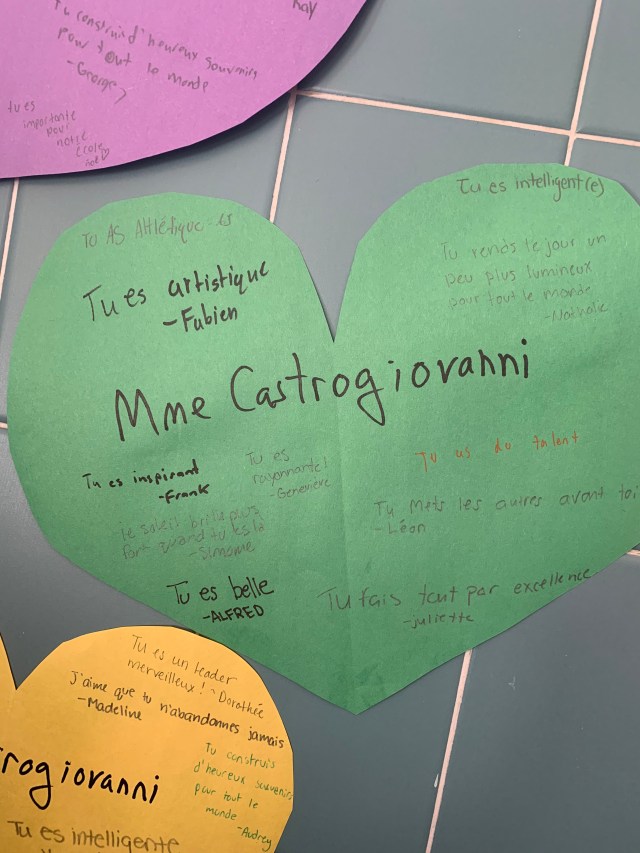 Kay
Tu construi d'heureux souvenirs
pour tout le monde
-George
tu es
importante
pour
notre
école
Tu es intelligent(e)
TU AS Athlétique es
Tu rends le jour un
peu plus lumineux
pour tout le monde
-Nathalie
Tu es artistique
-Fabien
Mme Castrogiovanni
Tu as du talent
Tu es inspirant
-Frank
Tu es
rayonnante!
-Geneviève
Tu Mets les autres avant toi
-Léon
le soleil brille plus
fort quand tu es là
-Simone
Tu es belle
-ALFRED
Tu fais tout par excellence
-Juliette
Tu es un leader
merveilleux! -Dorothée
J'aime que tu n'abandonnes jamais
-Madeline
Tu construis
d'heureux souvenirs
pour tout le
monde
-Audrey
rogiovanni
Tu es intelligente